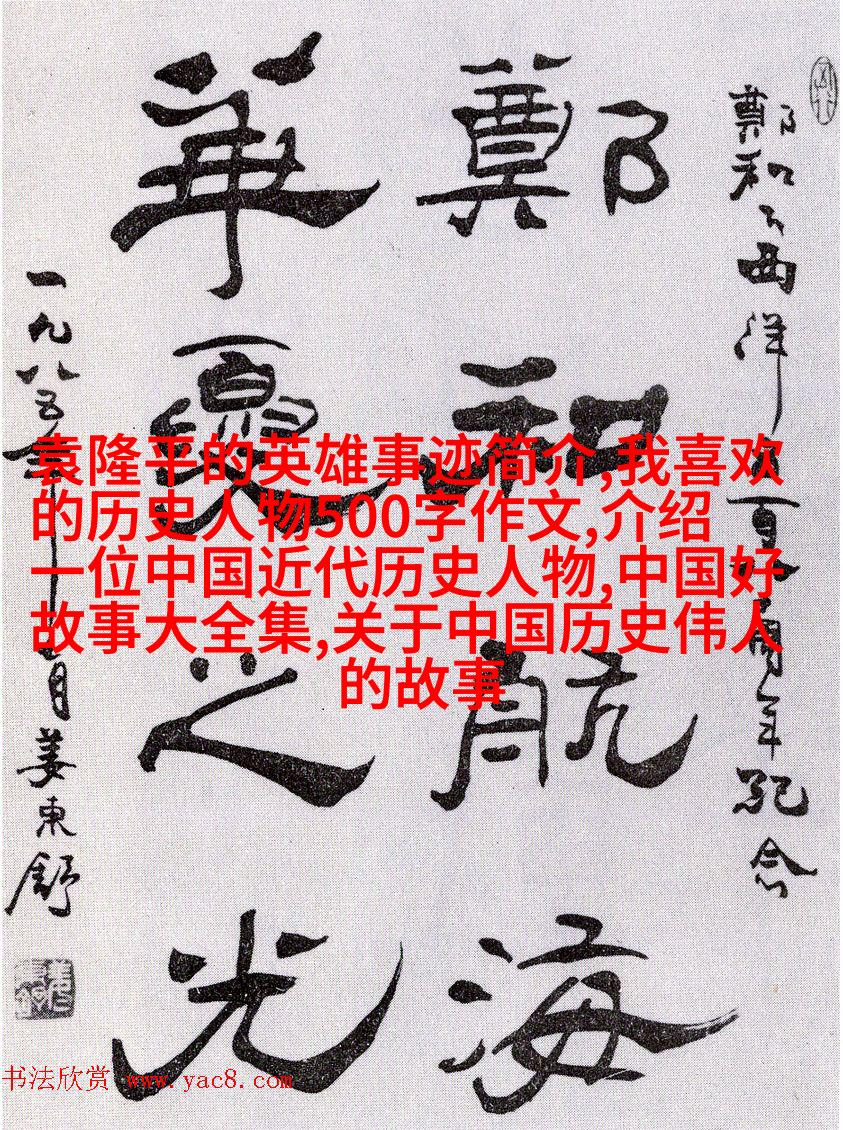 鄭和下西洋百周年紀念
鄭和航海
華夏之光
一九八五年月姜東舒
袁隆平的英雄事迹简介,我喜欢
的历史人物500字作文,介绍
一位中国近代历史人物,中国好
故事大全集,关于中国历史伟人
的故事
书法欣赏 www.yac8.com